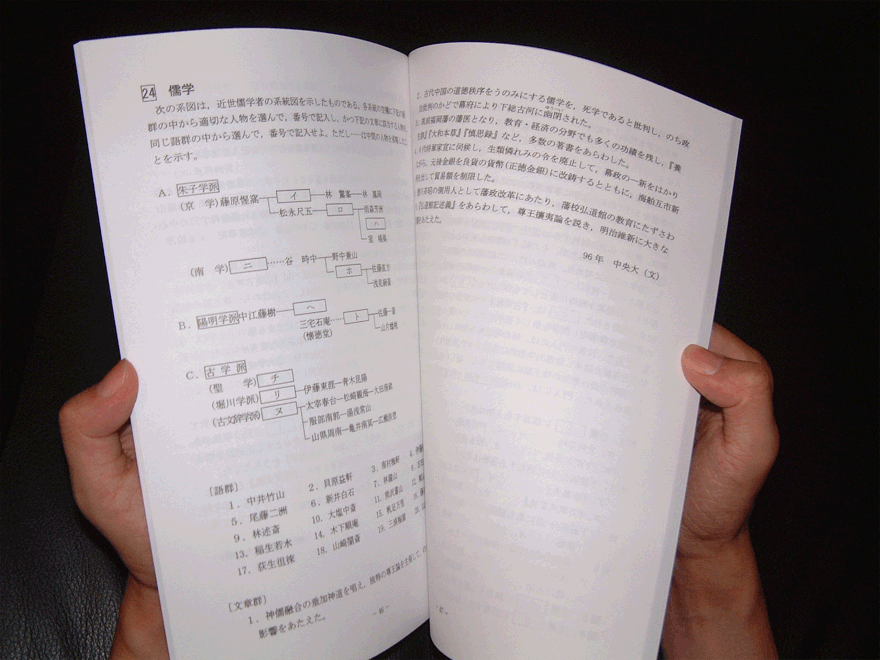 24 儒学
次の系図は，近世儒学者の系統図を示したものである。各系統の空欄に下記の語
群の中から適切な人物を選んで，番号で記入し，かつ下記の文章に該当する人物を
同じ語群の中から選んで，番号で記入せよ。ただし……は中間の人物を省略したこ
とを示す。
A．朱子学派
(京　学)藤原惺窩 イ 林　鵞峯 林　鳳岡
松永尺五 ロ 雨森芳洲
ハ
室　鳩巣
(南　学) ニ ……谷　時中 野中兼山
ホ 佐藤直方
浅見絅斎
B．陽明学派 中江藤樹 ヘ
三宅石庵…… ト 佐藤一斎
(懐徳堂) 山片蟠桃
C．古学派
(聖　学) チ
(堀川学派) リ 伊藤東涯―青木昆陽
(古文辞学派) ヌ 太宰春台―松崎観海―大田南畝
服部南郭―湯浅常山
山県周南―亀井南冥―広瀬淡窓
〔語群〕
1．中井竹山　2．貝原益軒　3．
5．尾藤二洲　6．新井白石　7．林羅山
9．林述斎　10．大塩中斎　11．熊沢蕃山
13．稲生若水　14．木下順庵　15．帆足万里
17．荻生徂徠　18．山崎闇斎　19．三浦梅園
〔文章群〕
1．神儒融合の垂加神道を唱え，独特の尊王論を主張して，
影響をあたえた。
2．古代中国の道徳秩序をうのみにする儒学を，死学であると批判し，のち政
治批判のかどで幕府により下総古河に幽閉された。
筑前福岡藩の藩医となり，教育・経済の分野でも多くの功績を残し，『養
生訓』『大和本草』『慎思録』など，多数の著書をあらわした。
代将軍家宣に伺候し，生類憐れみの令を廃止して，幕政の一新をはかり
ながら，元禄金銀を良質の貨幣(正徳金銀)に改鋳するとともに，海舶互市新
例を出して貿易額を制限した。
徳川斉昭の側用人として藩政改革にあたり，藩校弘道館の教育にたずさわ
『弘道館記述義』をあらわして，尊王攘夷論を説き，明治維新に大きな
影響をあたえた。
96年　中央大（文）